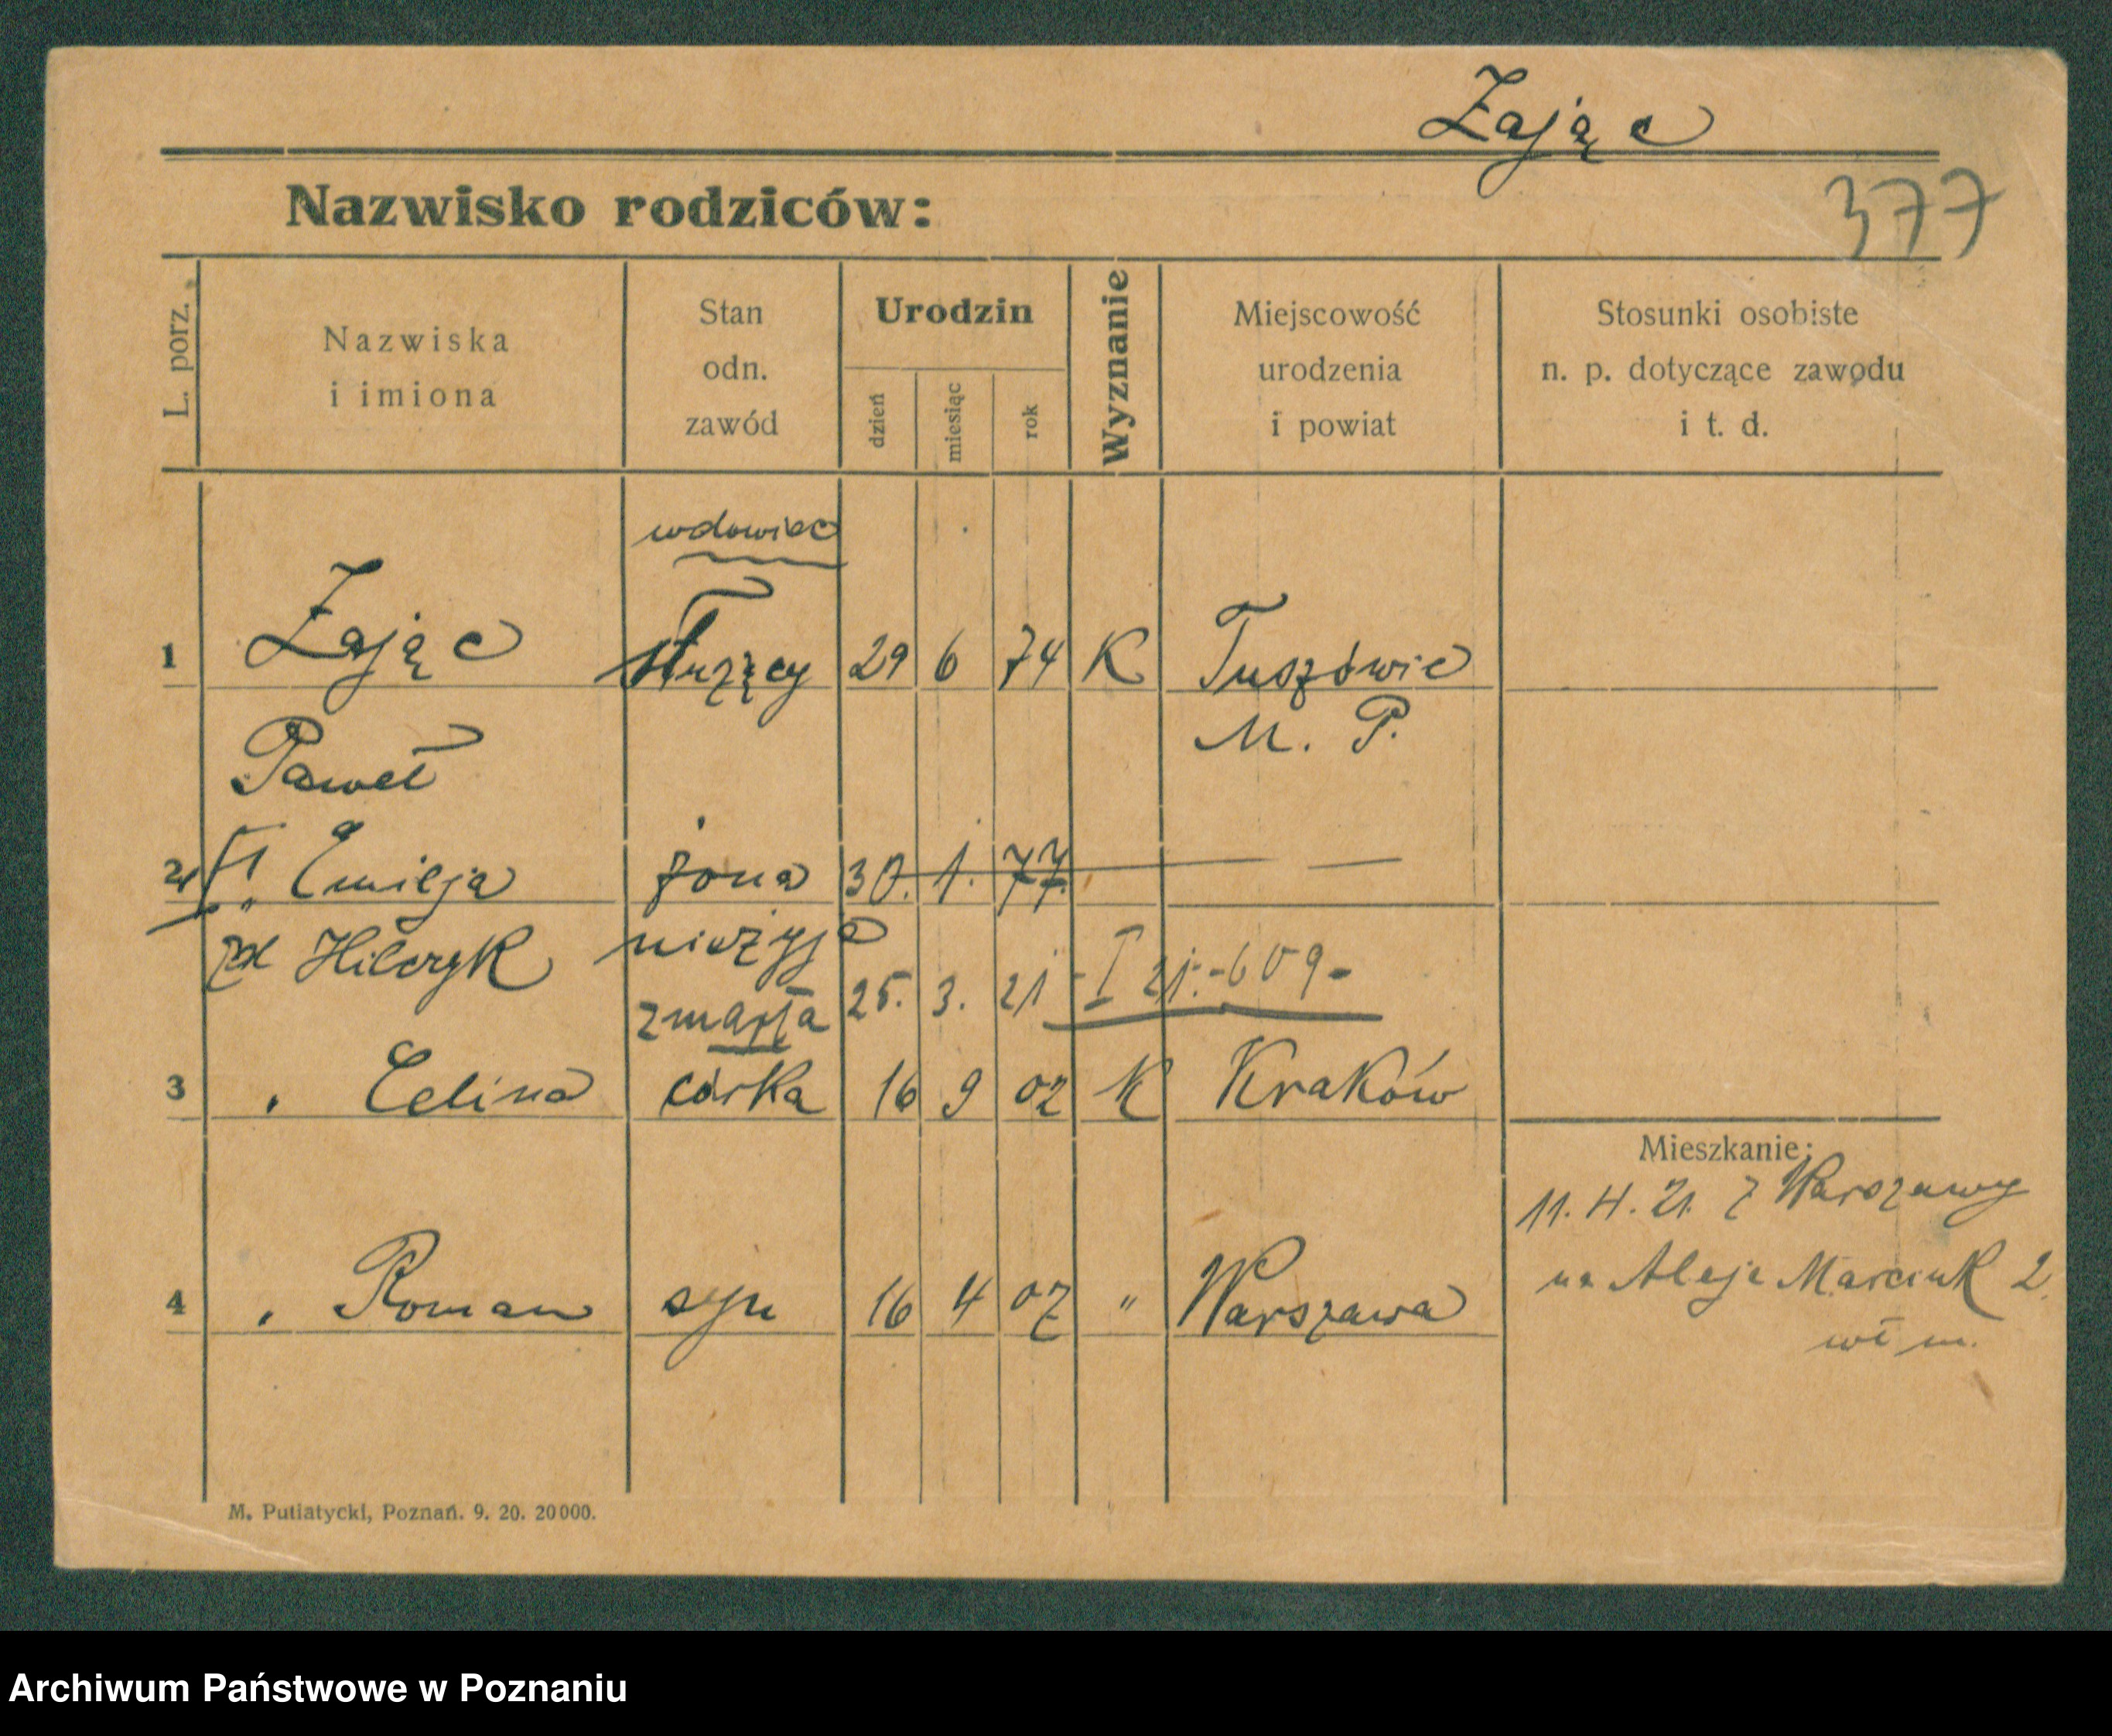 Zając
377
Nazwisko rodziców:
L. porz.
Nazwiska
i imiona
Stan
odn.
zawód
Urodzin
dzień
miesiąc
rok
Wyznanie
Miejscowość
urodzenia
i powiat
Stosunki osobiste
n. p. dotyczące zawodu
i t. d.
wdowiec
1 Zając służący 29 6 74 K Tuszów
Paweł M. P.
2 Emilja żona 30. 1. 77.
nieżyje
zmarła 25. 3. 21 - I 21.-609-
3 " Celina córka 16 9 02 K Kraków
Mieszkanie:
11. 4. 21. z Warszawy
na Aleje Marcink 2.
4 " Roman syn 16 4 07 " Warszawa
M. Putiatycki, Poznań. 9. 20. 20000.
Archiwum Państwowe w Poznaniu